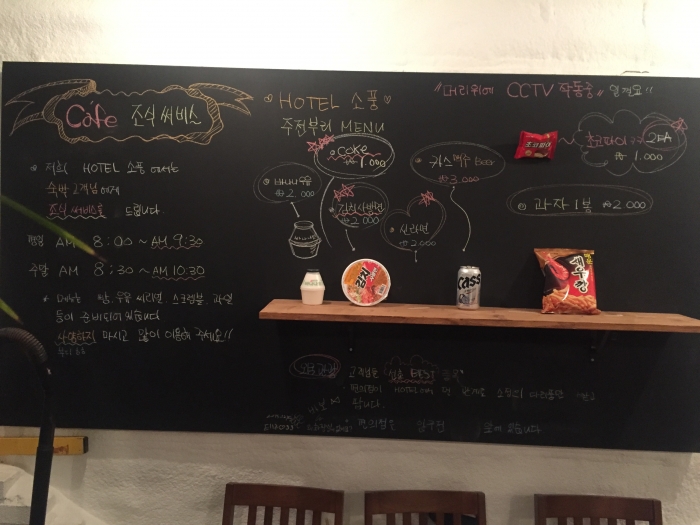 Café 조식 써비스
저희 HOTEL 소풍 에서는
숙박 고객님에게
조식 써비스를 드립니다.
평일 AM 8:00 ~ AM 9:30
주말 AM 8:30 ~ AM 10:30
메뉴는 빵, 우유, 씨리얼, 스크램블, 과일
등이 준비되어 있습니다
사양하지 마시고 많이 이용해 주세요!!
HOTEL 소풍
주전부리 MENU
coke
₩ 1,000
바나나우유
₩ 2,000
김치사발면
₩ 2,000
카스 맥주 Beer
₩ 3,000
신라면
₩ 2,000
"머리위에 CCTV 작동중" 일걸요!!
초코파이 2EA
₩ 1,000
과자 1봉 ₩ 2,000
초코파이
김치
cass
새우깡
고객님들
편의점이
편의점은
없습니다